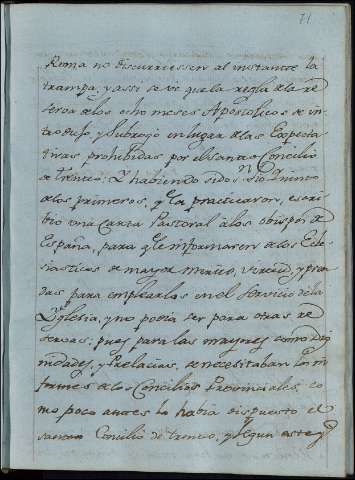 71
Roma no discurriessen al instante la
trampa, y assi se ve que la regla de la re
serva de los ocho meses Apostolicos se in
troduxo, y subrogò en lugar de las Expecta
tivas prohibidas por el Santo Concilio
de trento: Y habiendo sido Sn. Pio Quinto
de los primeros, q̃ la practicaron, escri
bio una Carta Pastoral à los obispos de
España, para q̃ le informaren de los Ecle
siasticos de mayor merito, virtud, y pren
das para emplearlos en el servicio de la
Yglesia, y no podia ser para otras re
servas; pues para las mayores como Dig
nidades, y Prelacias, se necesitaban los in
formes de los Concilios Provinciales, co
mo poco antes lo habia dispuesto el
santo Concilio de trento, y segun este